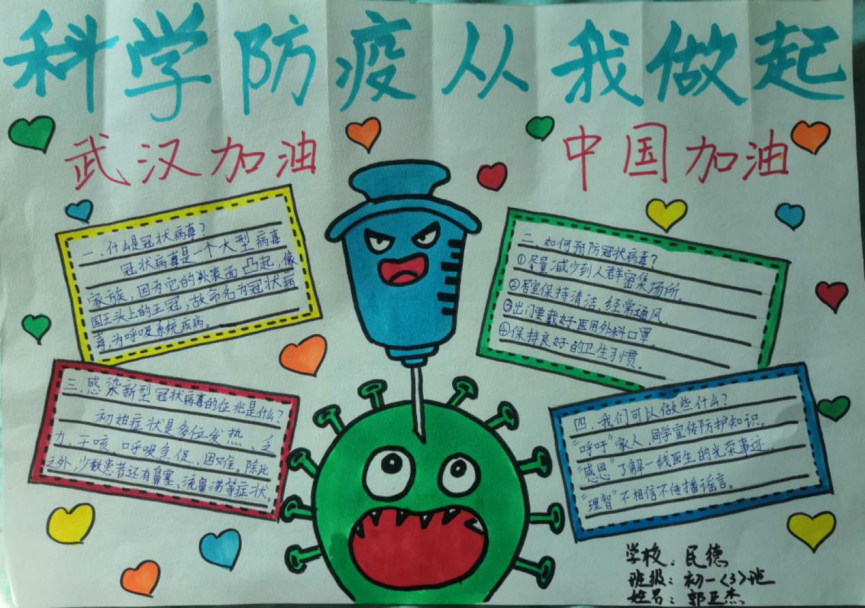 科学防疫从我做起
武汉加油
中国加油
一、什么是冠状病毒?
冠状病毒是一个大型病毒
家族，因为它的状表面凸起，像
国王头上的王冠，故命名为冠状病
毒，为呼吸系统疾病。
二、如何预防冠状病毒?
①尽量减少到人群密集场所。
②居室保持清洁，经常通风。
③出门要戴好医用外科口罩
④保持良好的卫生习惯。
三、感染新型冠状病毒的症兆是什么?
初始症状是多位发热、乏
力、干咳、呼吸急促、困难，除此
之外，少数患者还有鼻塞、流鼻涕等症状。
四、我们可以做些什么?
“呼吁”家人、同学宣传防护知识。
“感恩”了解一线医生的光荣事迹。
“理智”不相信不传播谣言。
学校：民德
班级：初一〈3〉班
姓名：郭亚杰